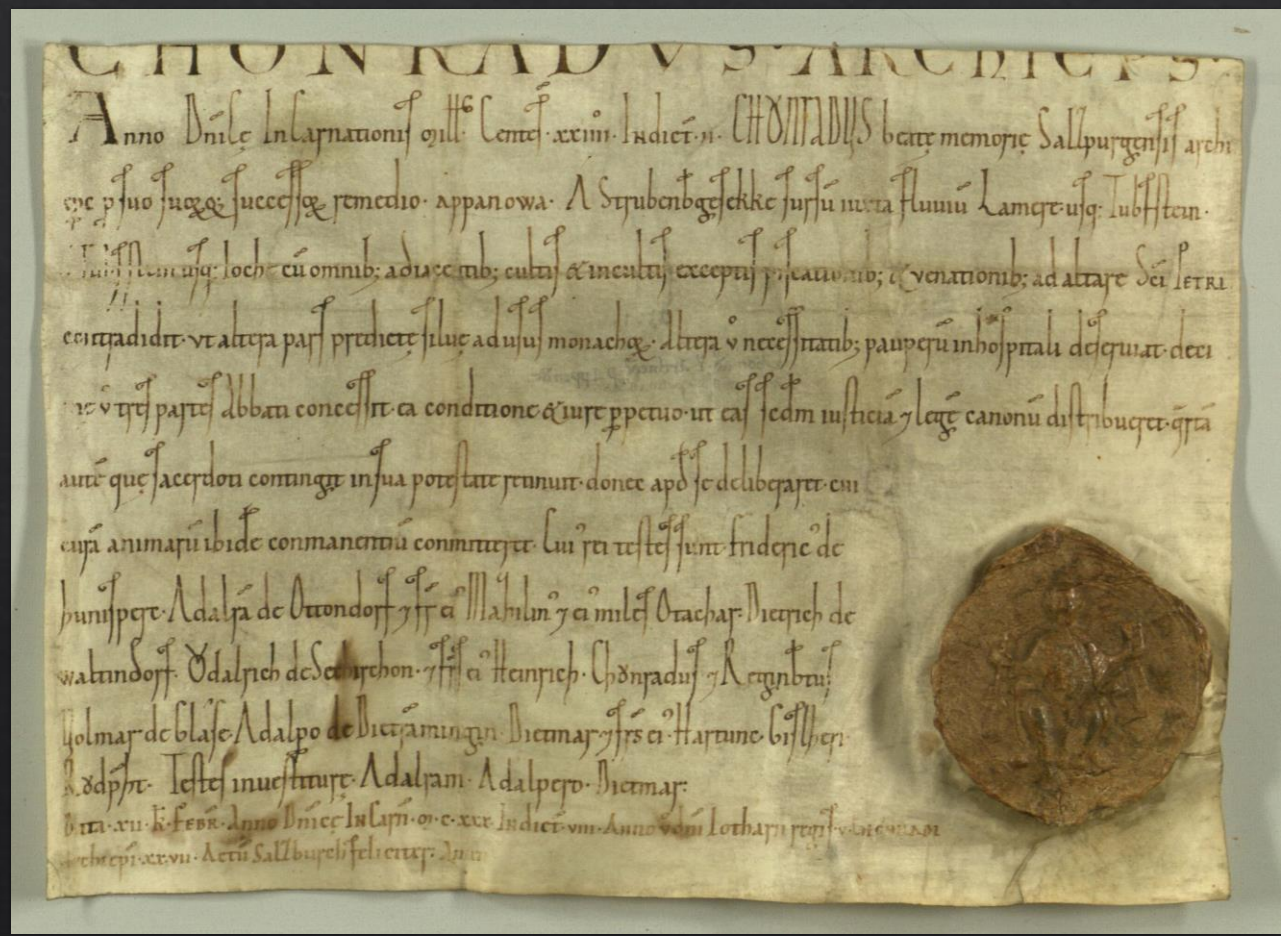 CHONRADVS· ARCHIEPS·
Anno Dn̄ilę Incarnationis Mill̄· Centes̄· xxiiii· Indict̄· ii· CHŎNRADUS beatę memorię Salzpurgensis archi
ep̄c p̄ suo suoꝝq; successoꝝ remedio· appanowa· A Strubenb̄gesekke sursū iuxta fluuiū Lamere· usq; Tubsstein·
usq; loche cū omnib; adiacentib; cultis & incultis exceptis piscationib; & venationib; ad altare Sc̄i PETRI
contradidit· vt altera pars predictę siluę ad usus monachoꝝ· Altera v̊ necessitatib; pauperū in hospitali deseruiat· deci
v̊ tres partes Abbati concessit· ea conditione & iure ꝑpetuo· ut eas sed̄m iusticiā ⁊ legē canonū distribueret· q̄rtā
autē quę sacerdoti contingit in sua potestate retinuit· donec apd̄ se deliberaret· cui
curā animarū ibidē conmanentiū conmitteret· Cui᾽ rei testes sunt· frideric᾽ de
hunisperc· Adalrā de Ottondorf ⁊ fr̄ ei᾽ Mahilin᾽ ⁊ ei᾽ miles Otachar· Dietrich de
waltindorf· Ŏdalrich de Sechirchon· ⁊ fr̄s ei᾽ Heinrich· Chŏnradus ⁊ Reginb̄tus
Uolmar de blase· Adalpo de Dietramingin· Dietmar ⁊ fr̄s ei᾽ Hartunc· Gislheri
Rŏdp̄ht· Testes inuestiturę· Adalram· Adalpero· Dietmar:
Data· xii· k· FEBR̄· Anno Dn̄icę Incarn̄· M·c·xxx· Indict̄· viii· Anno dom̄i Lotharii regis· v·
Archiep̄i· xxvii· Actū Salzburch feliciter· Am